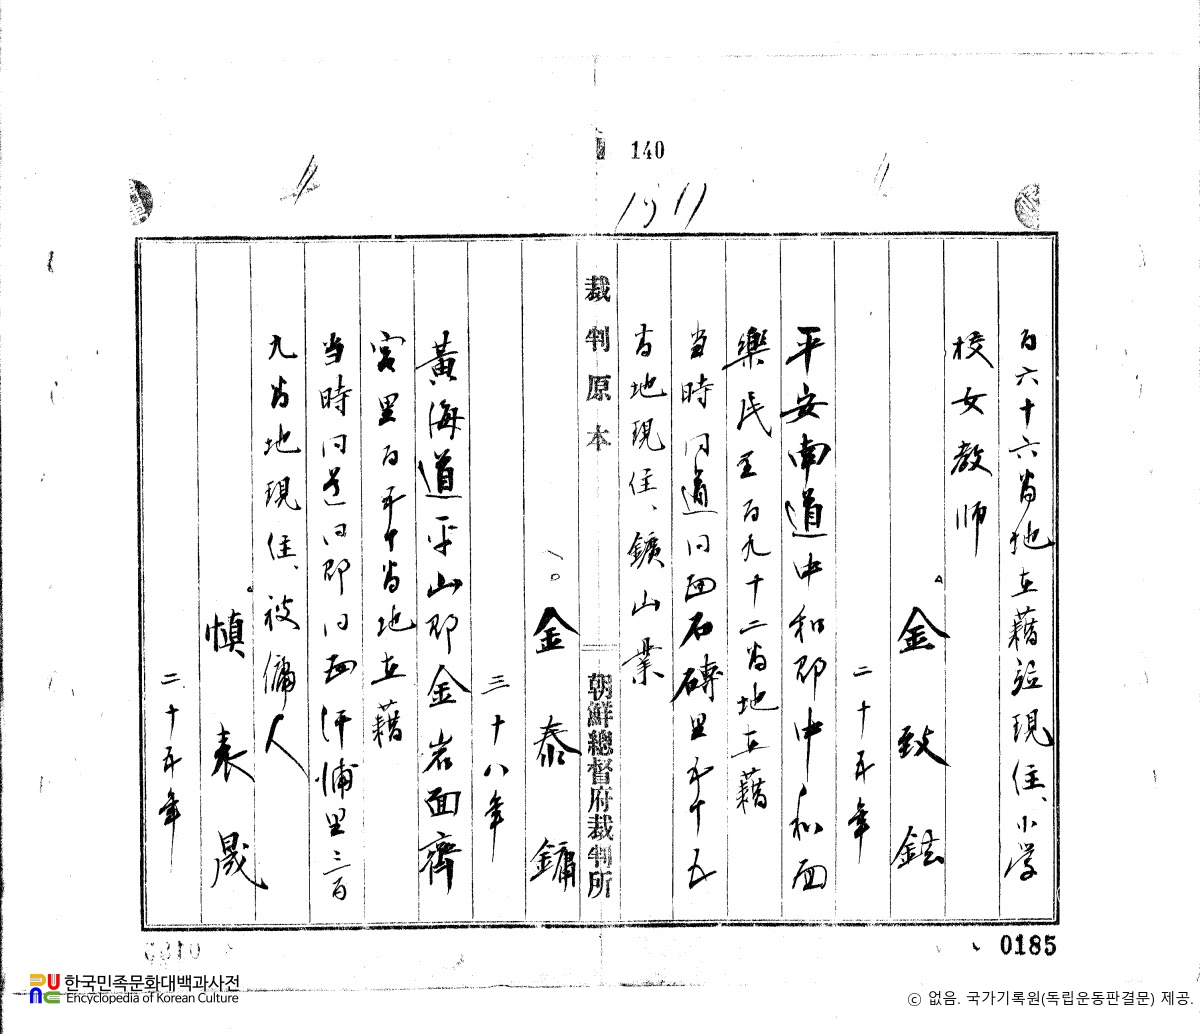 140
百六十六番地在籍並現住、小学
校女教師
金致鋐
二十五年
平安南道中和郡中和面
樂民里百九十二番地在籍
当時同道同面石磚里五十五
番地現住、鑛山業
裁判原本
朝鮮總督府裁判所
金泰鏞
三十八年
黃海道平山郡金岩面齊
宮里百五十番地在籍
当時同道同郡同面汗浦里三百
九番地現住、被傭人
愼表晟
二十五年
0185
한국민족문화대백과사전
Encyclopedia of Korean Culture
ⓒ 없음. 국가기록원(독립운동판결문) 제공.